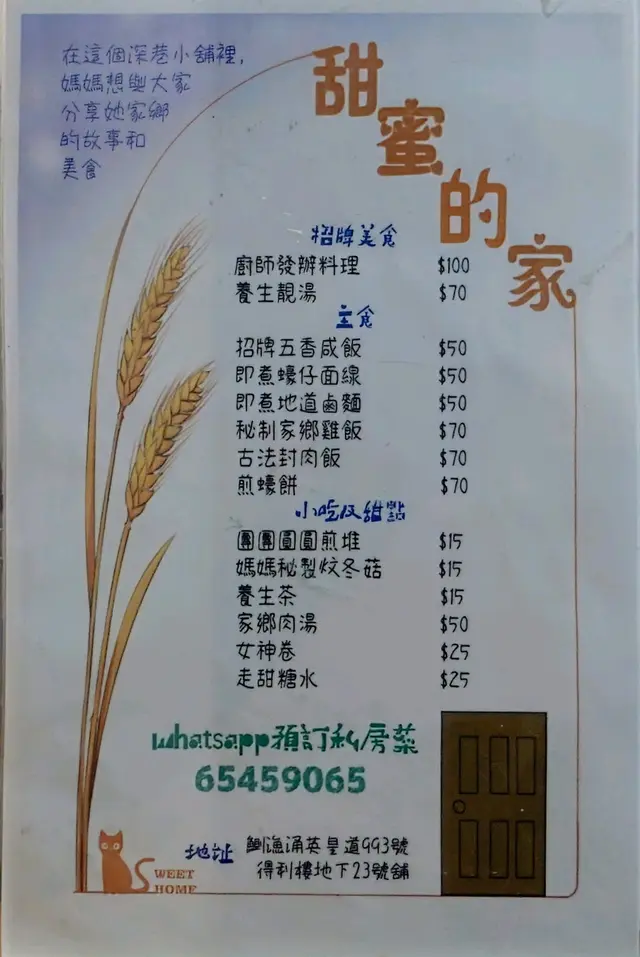 在這個深巷小舖裡，
媽媽想與大家
分享她家鄉
的故事和
美食
甜蜜的家
招牌美食
廚師發辦料理 $100
養生靚湯 $70
主食
招牌五香咸飯 $50
即煮蠔仔面線 $50
即煮地道鹵麵 $50
秘制家鄉雞飯 $70
古法封肉飯 $70
煎蠔餅 $70
小吃及甜點
團團圓圓煎堆 $15
媽媽秘製炆冬菇 $15
養生茶 $15
家鄉肉湯 $50
女神卷 $25
走甜糖水 $25
whatsapp預訂私房菜
65459065
地址
鰂漁涌英皇道993號
得利樓地下23號舖
SWEET
HOME